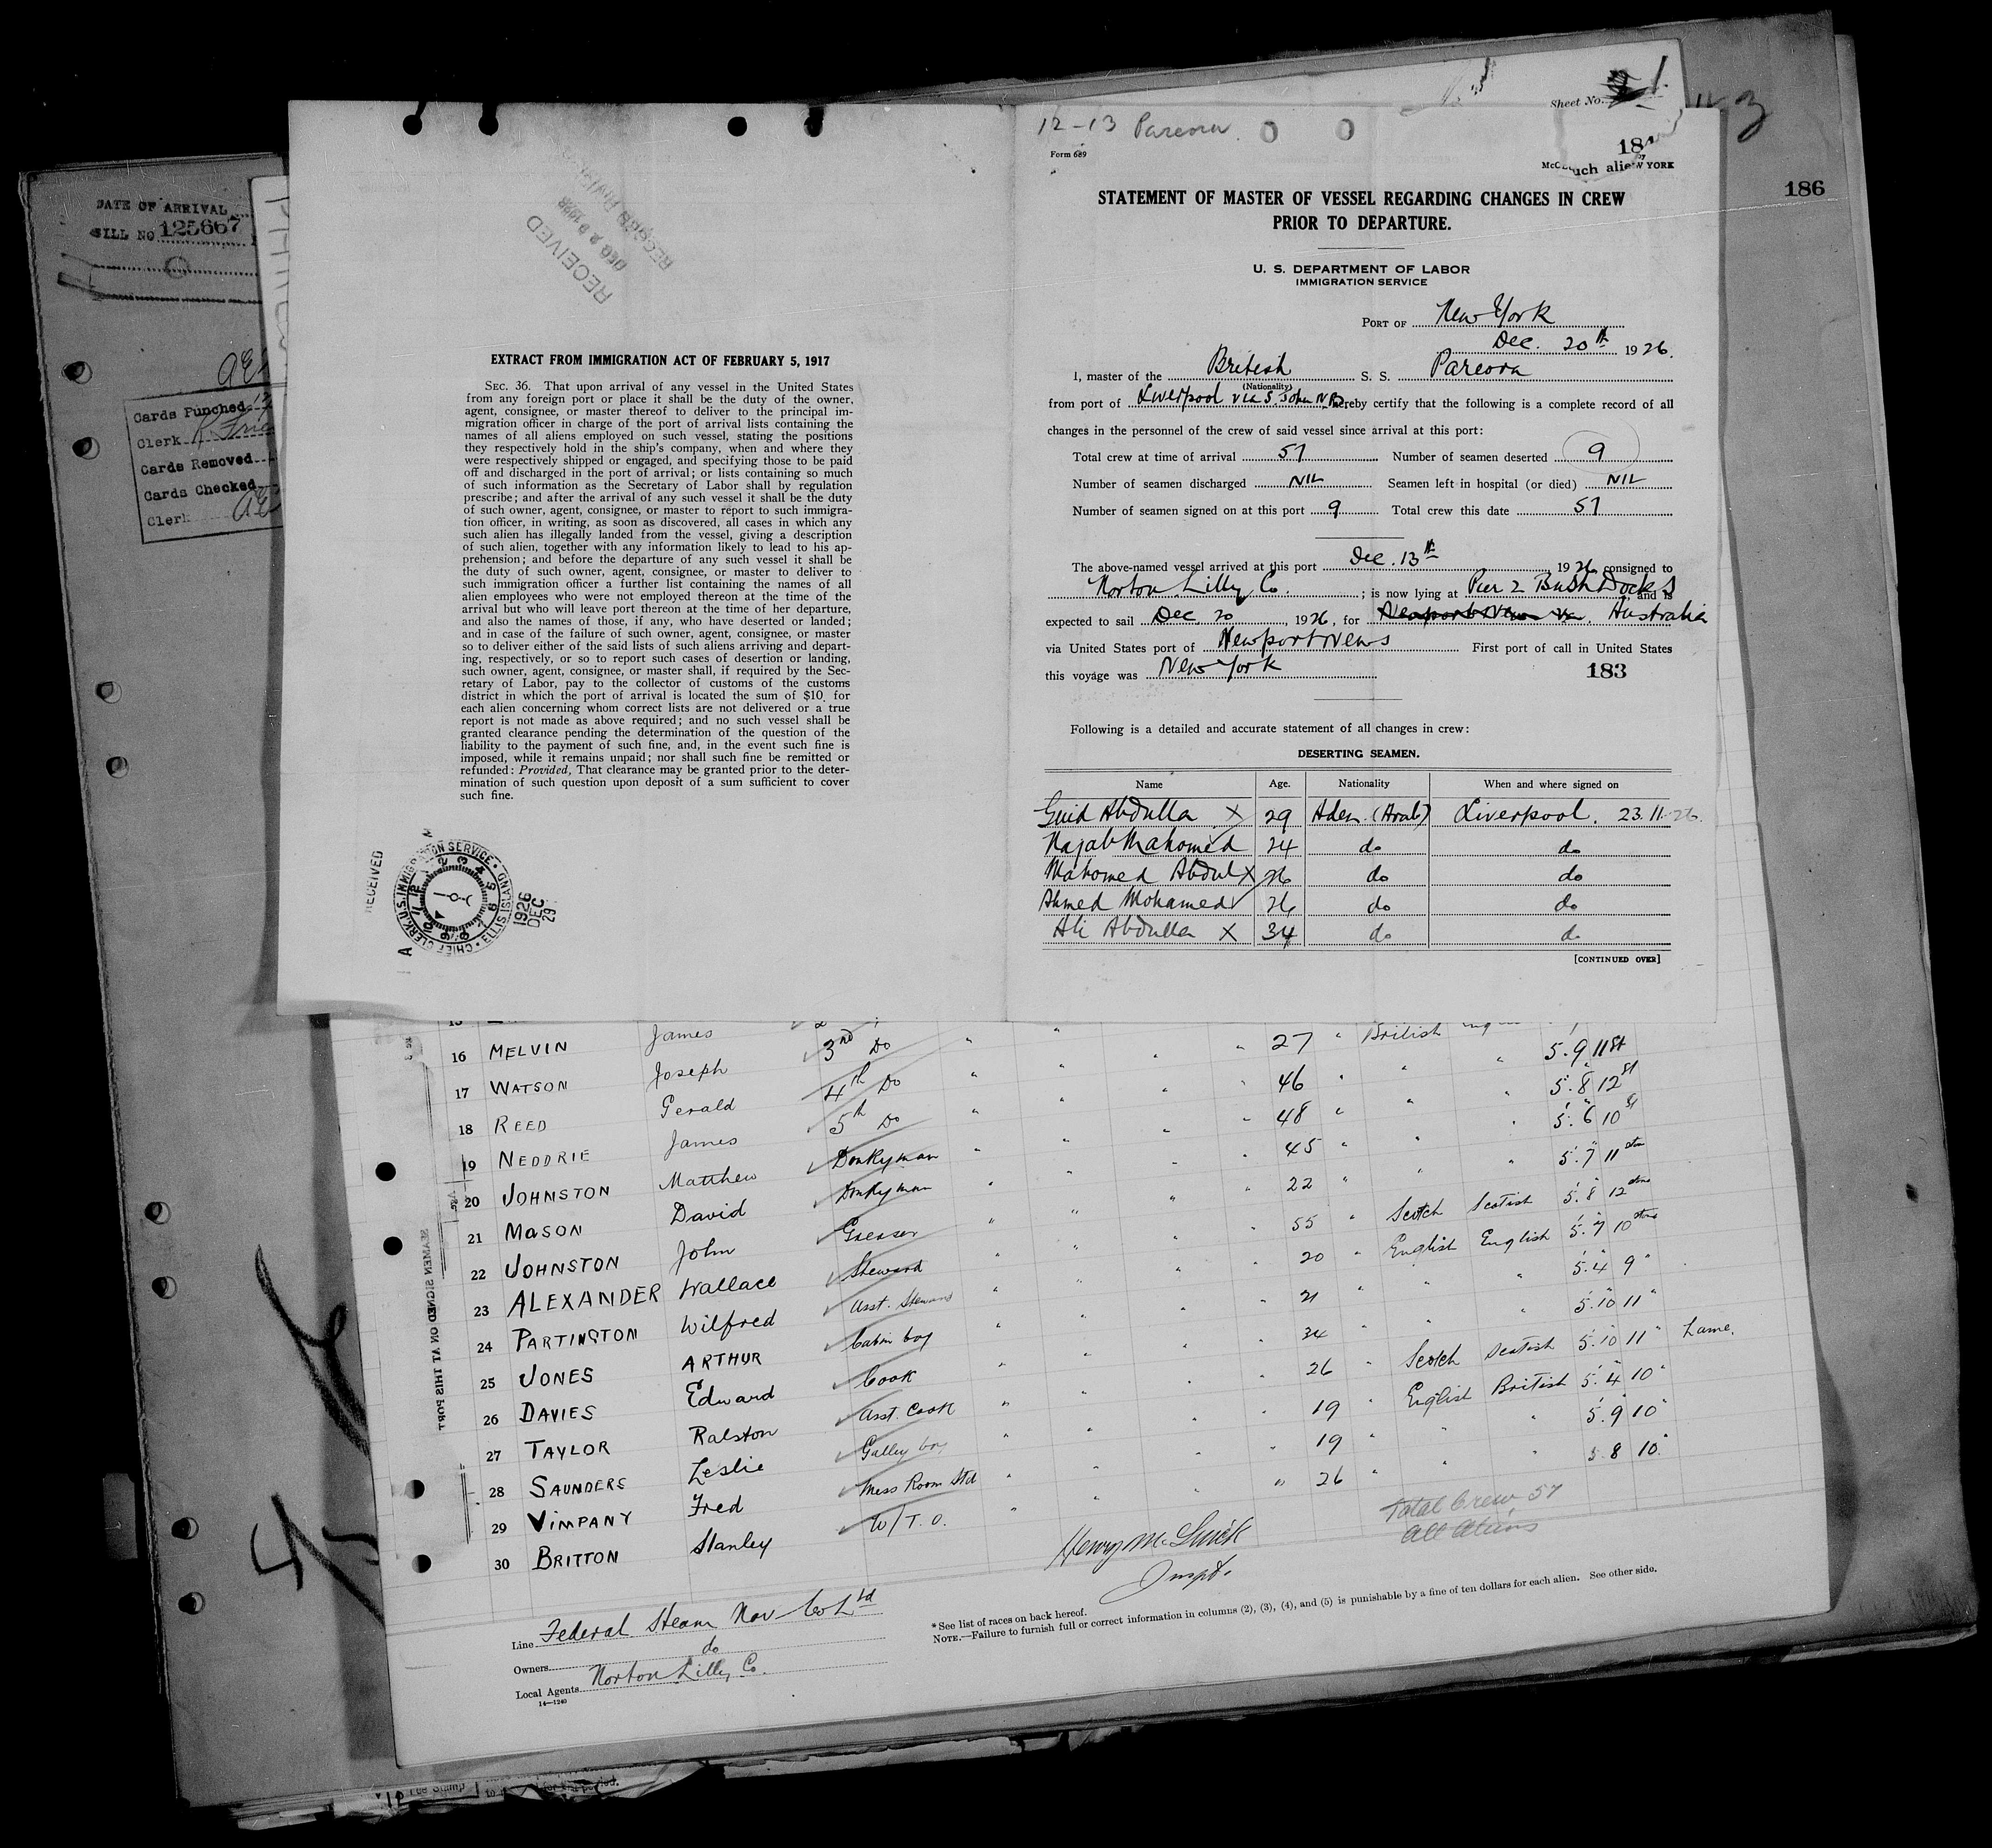 Sheet No. 1
186
DATE OF ARRIVAL
BILL NO 125667
Cards Punched
Clerk
Cards Removed
Cards Checked
Clerk
RECEIVED
DEC 29 1926
EXTRACT FROM IMMIGRATION ACT OF FEBRUARY 5, 1917
SEC. 36. That upon arrival of any vessel in the United States
from any foreign port or place it shall be the duty of the owner,
agent, consignee, or master thereof to deliver to the principal im-
migration officer in charge of the port of arrival lists containing the
names of all aliens employed on such vessel, stating the positions
they respectively hold in the ship's company, when and where they
were respectively shipped or engaged, and specifying those to be paid
off and discharged in the port of arrival; or lists containing so much
of such information as the Secretary of Labor shall by regulation
prescribe; and after the arrival of any such vessel it shall be the duty
of such owner, agent, consignee, or master to report to such immigra-
tion officer, in writing, as soon as discovered, all cases in which any
such alien has illegally landed from the vessel, giving a description
of such alien, together with any information likely to lead to his ap-
prehension; and before the departure of any such vessel it shall be
the duty of such owner, agent, consignee, or master to deliver to
such immigration officer a further list containing the names of all
alien employees who were not employed thereon at the time of the
arrival but who will leave port thereon at the time of her departure,
and also the names of those, if any, who have deserted or landed;
and in case of the failure of such owner, agent, consignee, or master
so to deliver either of the said lists of such aliens arriving and depart-
ing, respectively, or so to report such cases of desertion or landing,
such owner, agent, consignee, or master shall, if required by the Sec-
retary of Labor, pay to the collector of customs of the customs
district in which the port of arrival is located the sum of $10 for
each alien concerning whom correct lists are not delivered or a true
report is not made as above required; and no such vessel shall be
granted clearance pending the determination of the question of the
liability to the payment of such fine, and, in the event such fine is
imposed, while it remains unpaid; nor shall such fine be remitted or
refunded: Provided, That clearance may be granted prior to the deter-
mination of such question upon deposit of a sum sufficient to cover
such fine.
RECEIVED
CHIEF CLERK U.S. IMMIGRATION SERVICE · ELLIS ISLAND
1926 DEC 29
12-13 Pareora
Form 689
uch alie
W YORK
STATEMENT OF MASTER OF VESSEL REGARDING CHANGES IN CREW
PRIOR TO DEPARTURE.
U. S. DEPARTMENT OF LABOR
IMMIGRATION SERVICE
PORT OF New York
Dec. 20th 1926.
I, master of the British S. S. Pareora
(Nationality)
from port of Liverpool via S. John N.B. hereby certify that the following is a complete record of all
changes in the personnel of the crew of said vessel since arrival at this port:
Total crew at time of arrival 57 Number of seamen deserted 9
Number of seamen discharged NIL Seamen left in hospital (or died) NIL
Number of seamen signed on at this port 9 Total crew this date 57
The above-named vessel arrived at this port Dec. 13th, 1926, consigned to
Norton Lilly Co.; is now lying at Pier 2 Bush Docks, and is
expected to sail Dec 20, 1926, for Newport News Va. Australia
via United States port of Newport News First port of call in United States
this voyage was New York
183
Following is a detailed and accurate statement of all changes in crew:
DESERTING SEAMEN.
Name Age. Nationality When and where signed on
Abdulla X 29 Aden (Arab) Liverpool. 23.11.26.
Najab Mahomed 24 do do
Mahomed Abdul X 26 do do
Ahmed Mohamed 26 do do
Ali Abdulla X 34 do do
[CONTINUED OVER]
SEAMEN SIGNED ON AT THIS PORT
James
16 MELVIN Joseph 3rd Do 27 British 5.9 11 St
17 WATSON Gerald 4th Do 46 5.8 12 St
18 REED James 5th Do 48 5.6 10 St
19 NEDDRIE Matthew Donkyman 45 5.7 11 stone
20 JOHNSTON David Donkyman 22 Scotch Scotish 5.8 12 stone
21 MASON John Greaser 55 English English 5.7 10 stone
22 JOHNSTON Wallace Steward 20 5.4 9
23 ALEXANDER Wilfred Asst. Steward 21 5.10 11
24 PARTINGTON ARTHUR Cabin boy 34 Scotch Scotish 5.10 11 Lame.
25 JONES Edward Cook 26 English British 5.4 10
26 DAVIES Ralston Asst. Cook 19 5.9 10
27 TAYLOR Leslie Galley boy 19 5.8 10
28 SAUNDERS Fred Mess Room Std 26
29 VIMPANY Stanley W/T.O.
30 BRITTON
Total Crew 57
All Aliens
Inspt.
Line Federal Steam Nav Co Ltd
Owners do
Local Agents Norton Lilly Co.
14—1240
* See list of races on back hereof.
NOTE.—Failure to furnish full or correct information in columns (2), (3), (4), and (5) is punishable by a fine of ten dollars for each alien. See other side.